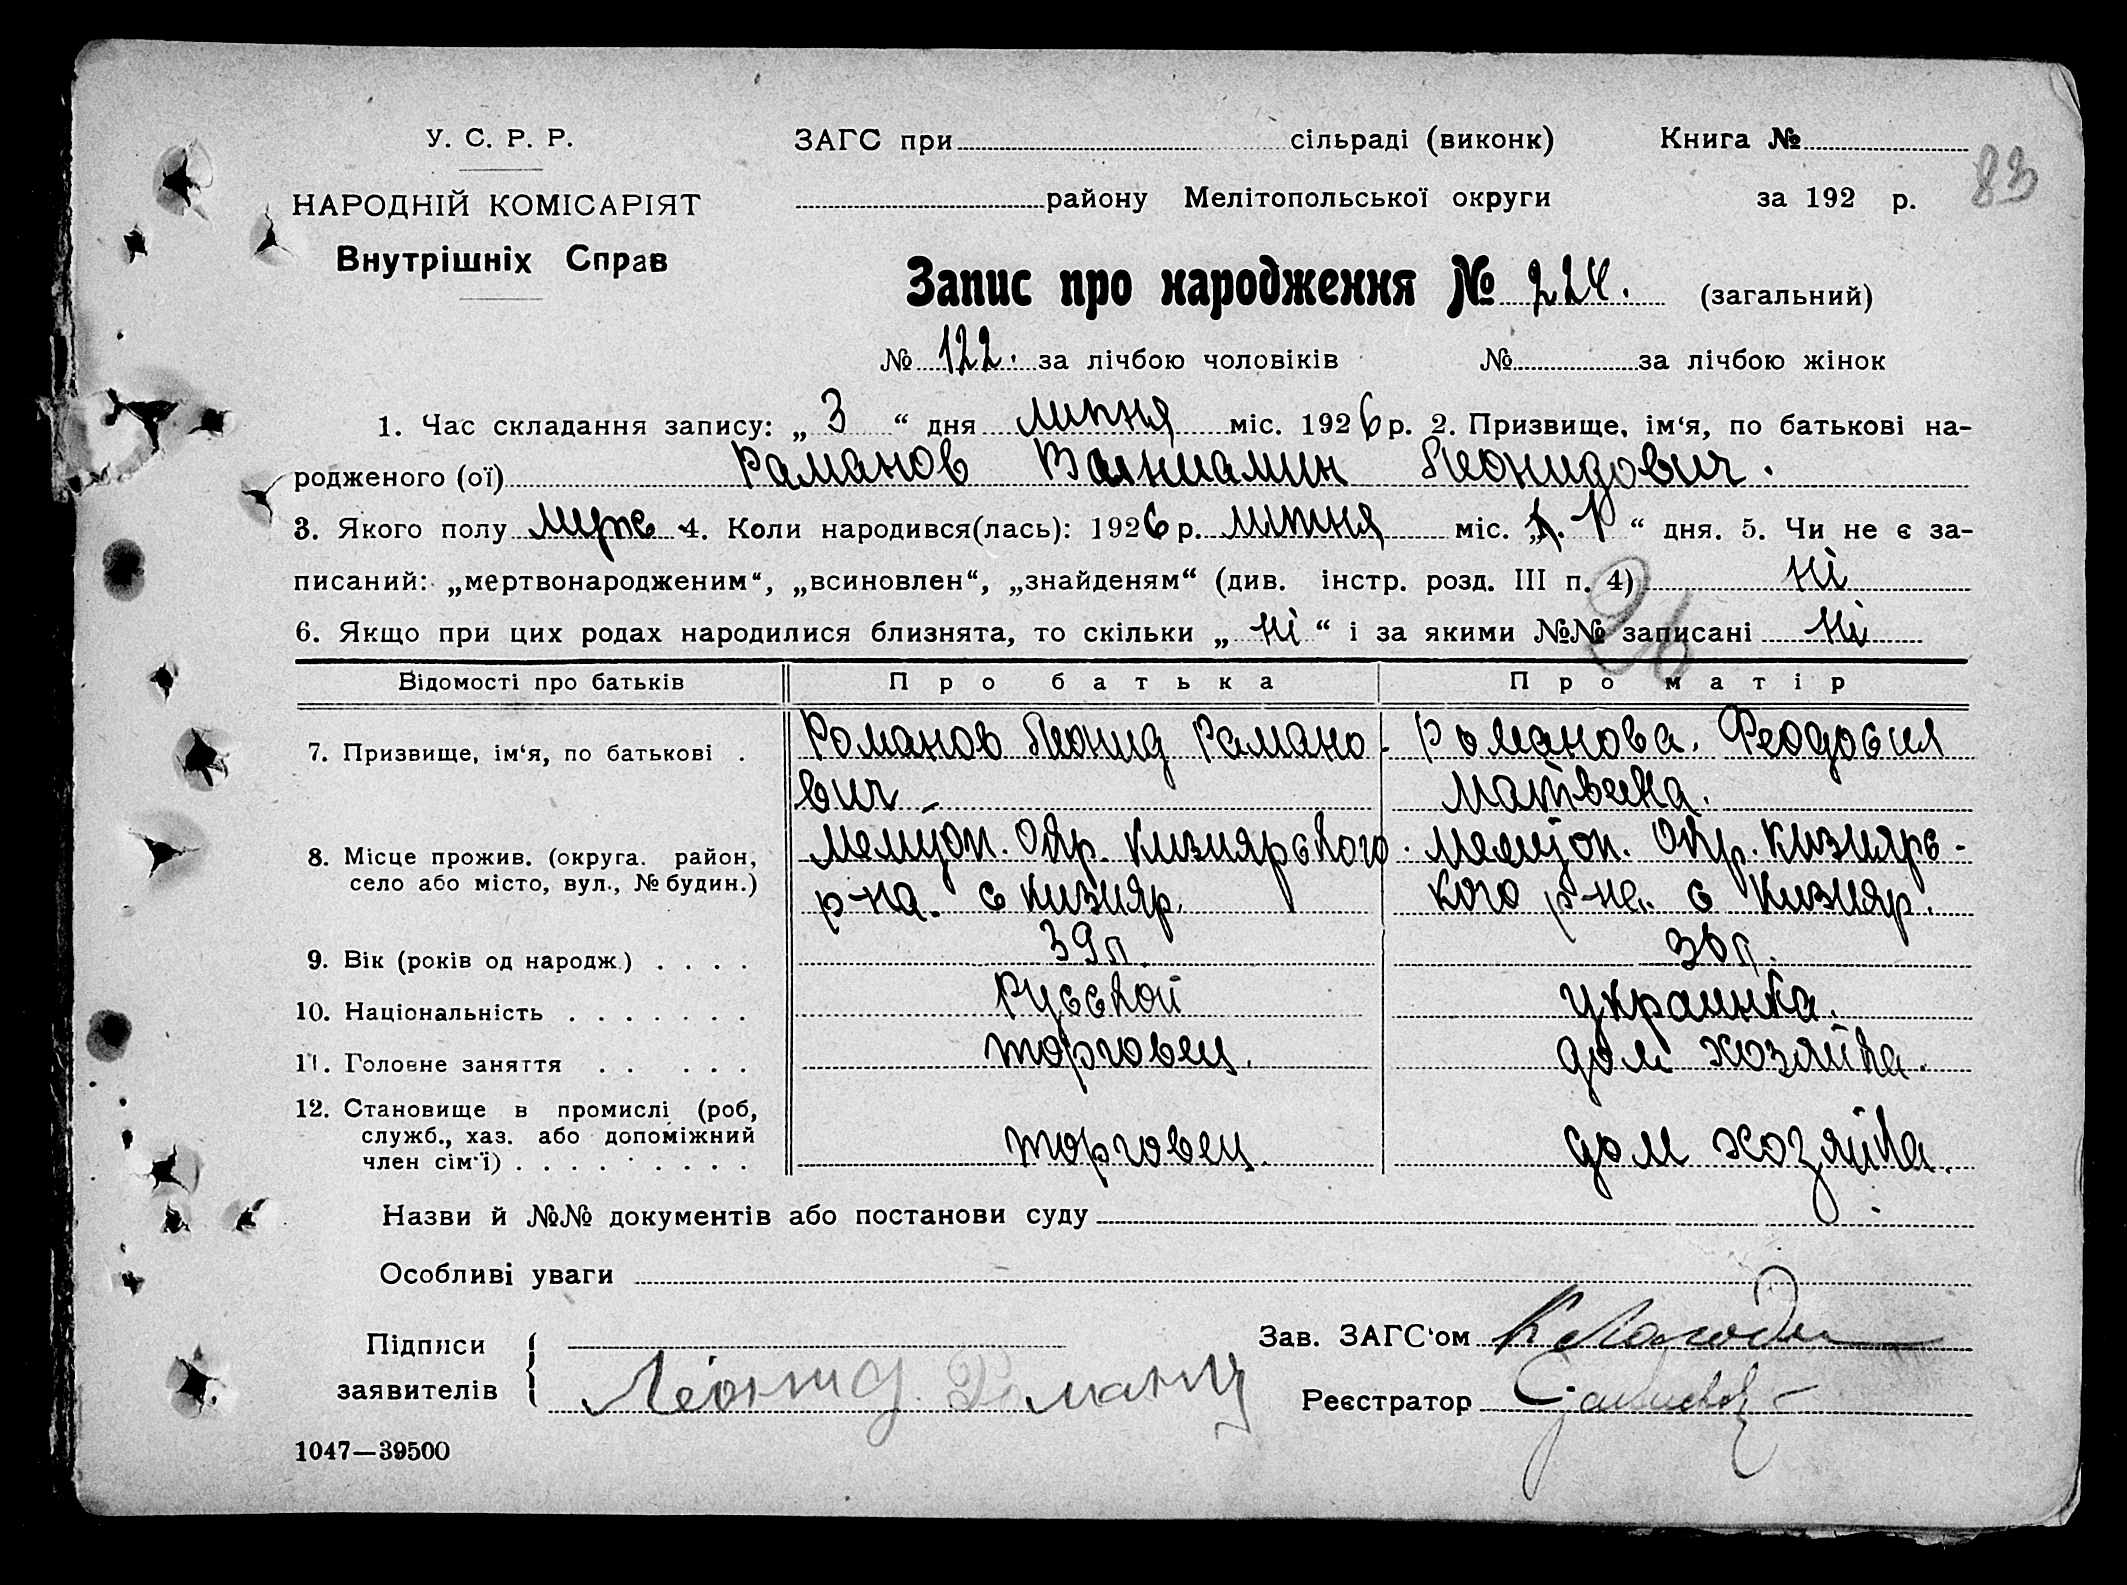 У. С. Р. Р.
НАРОДНІЙ КОМІСАРІЯТ
Внутрішніх Справ
ЗАГС при сільраді (виконк) Книга №
83
району Мелітопольської округи за 192 р.
Запис про народження № 224. (загальний)
№ 122. за лічбою чоловіків № за лічбою жінок
1. Час складання запису: „ 3 “ дня липня міс. 1926 р. 2. Призвище, ім‘я, по батькові на-
родженого (ої) Раманов Вениамин Леонидович.
3. Якого полу муже 4. Коли народився(лась): 1926 р. липня міс. „ “ дня. 5. Чи не є за-
писаний: „мертвонародженим“, „всиновлен“, „знайденям“ (див. інстр. розд. III п. 4) ні
6. Якщо при цих родах народилися близнята, то скільки „ ні “ і за якими №№ записані ні
26
Відомості про батьків Про батька Про матір
7. Призвище, ім‘я, по батькові . Романов Леонид Рамано- Романова. Феодосия
вич Матвеевна.
8. Місце прожив. (округа. район, Мелитоп. Окр. Кизиярского Мелитоп. Окр. Кизиярс-
село або місто, вул., № будин.) р-на. с Кизияр. кого р-на. с Кизияр.
9. Вік (років од народж.) . . . . 39 л. 36 л.
10. Національність . . . . . . . Русской украинка.
11. Головне заняття . . . . . торговец. дом хозяйка.
12. Становище в промислі (роб, служб., хаз. або допоміжний член сім‘ї) . . . . . . . . . торговец. дом хозяйка.
Назви й №№ документів або постанови суду
Особливі уваги
Підписи заявителів
Леонид Романц
Зав. ЗАГС‘ом
Реєстратор
1047—39500